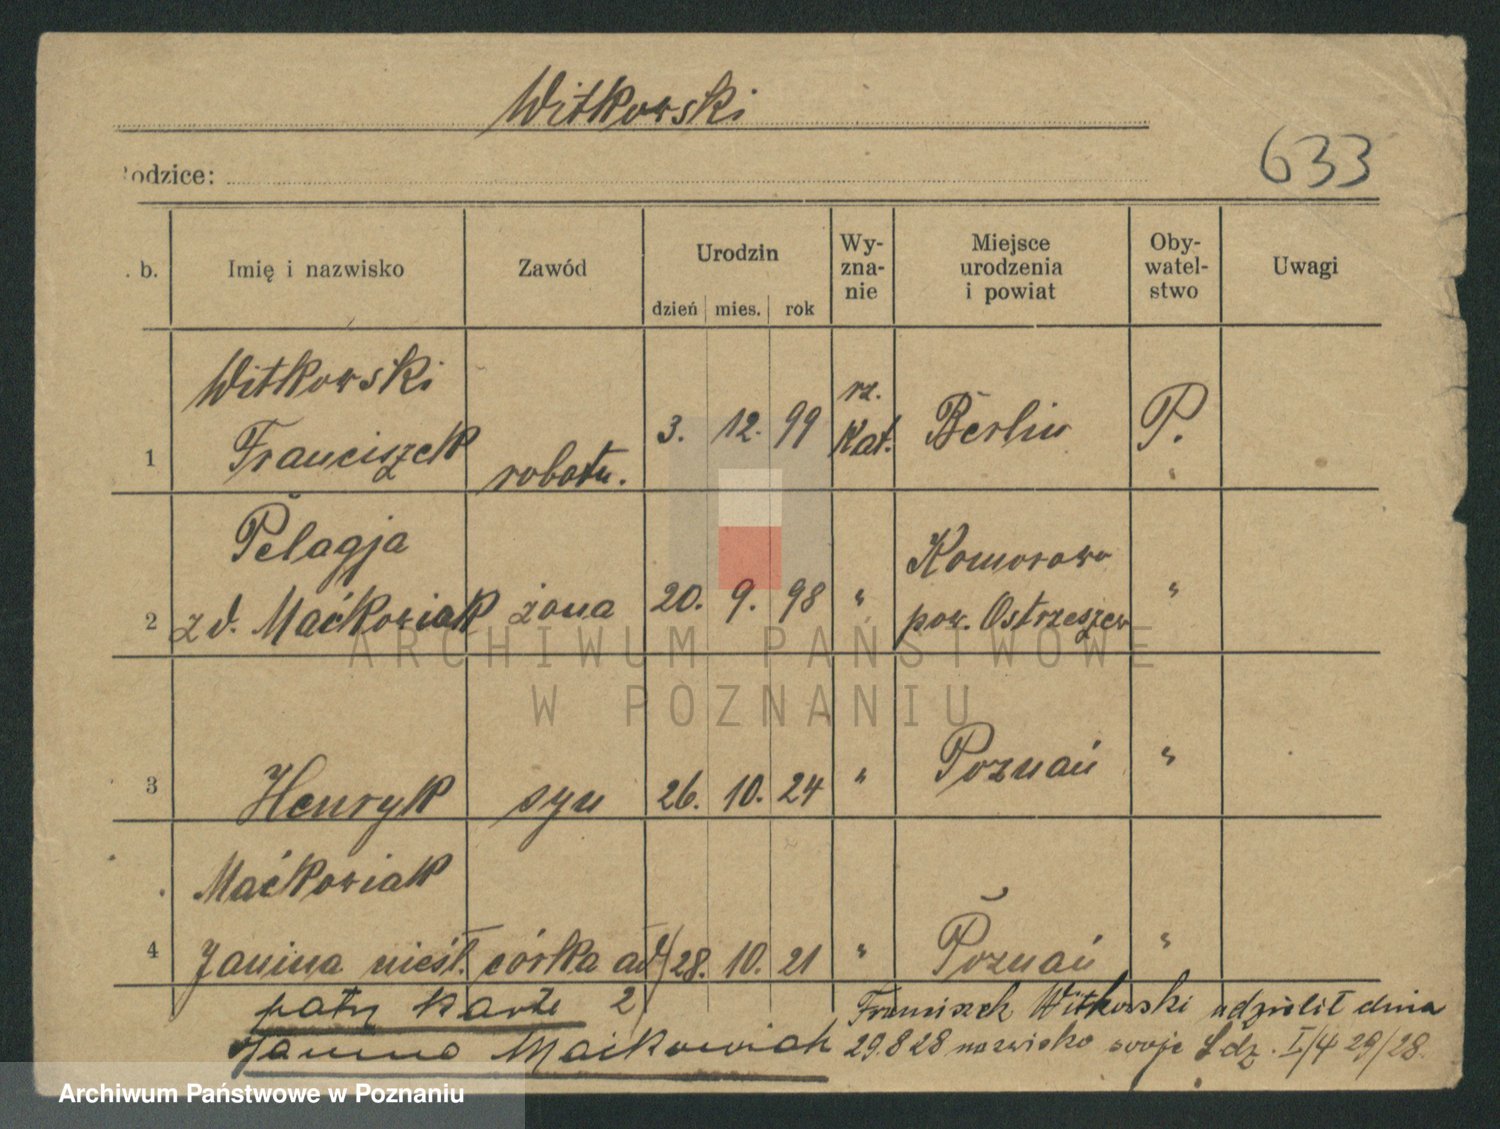 Witkowski
633
odzice:
. b. Imię i nazwisko Zawód Urodzin dzień mies. rok Wy-zna-nie Miejsce urodzenia i powiat Oby-watel-stwo Uwagi
Witkowski
1 Franciszek robotn. 3. 12. 99 rz. Kat. Berlin P.
Pelagja
2 z d. Maćkowiak żona 20. 9. 98 " Komorowo pow. Ostrzeszew "
3 Henryk syn 26. 10. 24 " Poznań "
Maćkowiak
4 Janina nieśl. córka ad 28. 10. 21 " Poznań "
patrz karte 2
Janina Maćkowiak
Franciszek Witkowski udzielił dnia
29.8 28 nazwisko swoje L dz. I/4 29/28.
ARCHIWUM PAŃSTWOWE
W POZNANIU
Archiwum Państwowe w Poznaniu